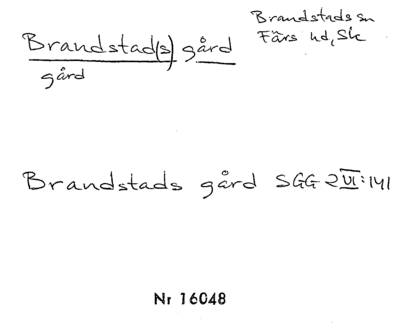 Brandstads sn
Färs hd, Sk
Brandstad(s) gård
gård
Brandstads gård SGG 2 VI:141
Nr 16048